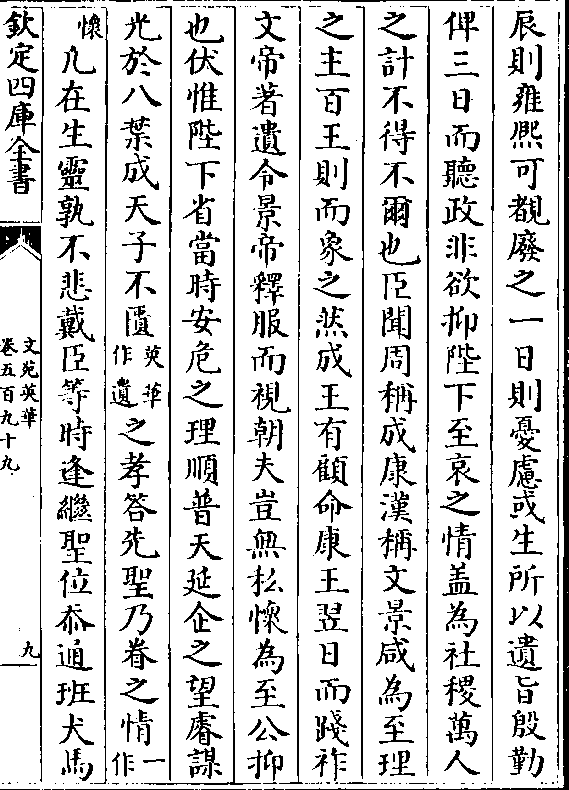 辰則雍熈可覩廢之一日則憂慮或生所以遺旨殷勤
俾三日而聽政非欲抑陛下至哀之情盖為社稷萬人
之計不得不爾也臣聞周稱成康漢稱文景咸為至理
之主百王則而象之然成王有顧命康王翌日而踐祚
文帝著遺令景帝釋服而視朝夫豈無私懷為至公抑
也伏惟陛下省當時安危之理順普天延企之望睿謀
光於八葉成天子不匱英華作遺之孝答先聖乃眷之情一作
懷凡在生靈孰不悲戴臣等時逢繼聖位忝通班犬馬
欽定四庫全書
文苑英華
卷五百九十九
九